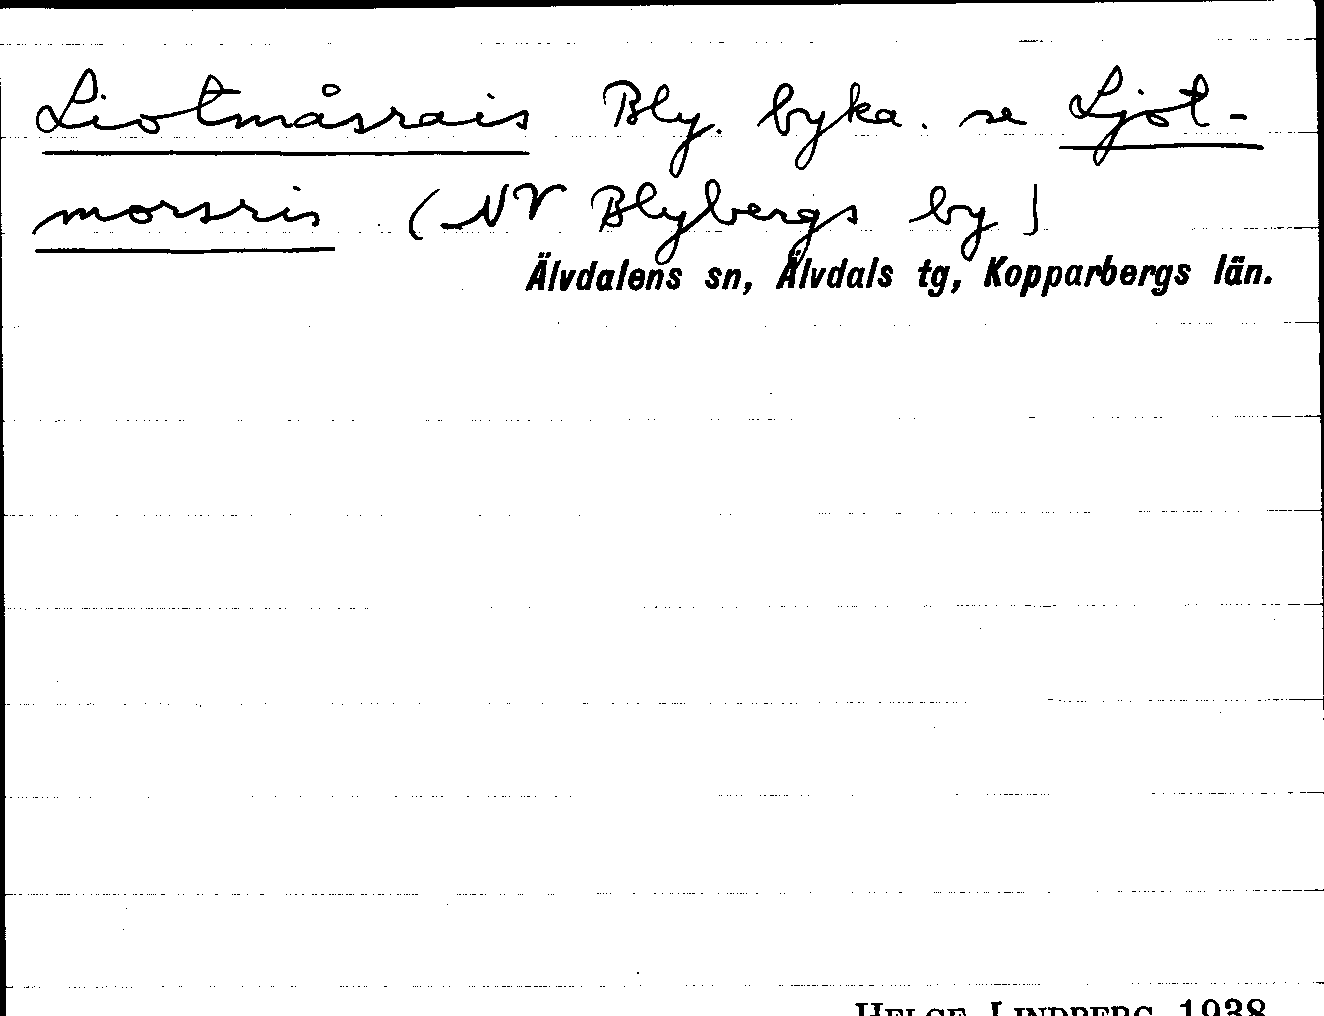 Liotmåsrais Bly. byka. se Ljot-
morsris (NV Blybergs by)
Älvdalens sn, Älvdals tg, Kopparbergs län.
HELGE LINDBERG 1938